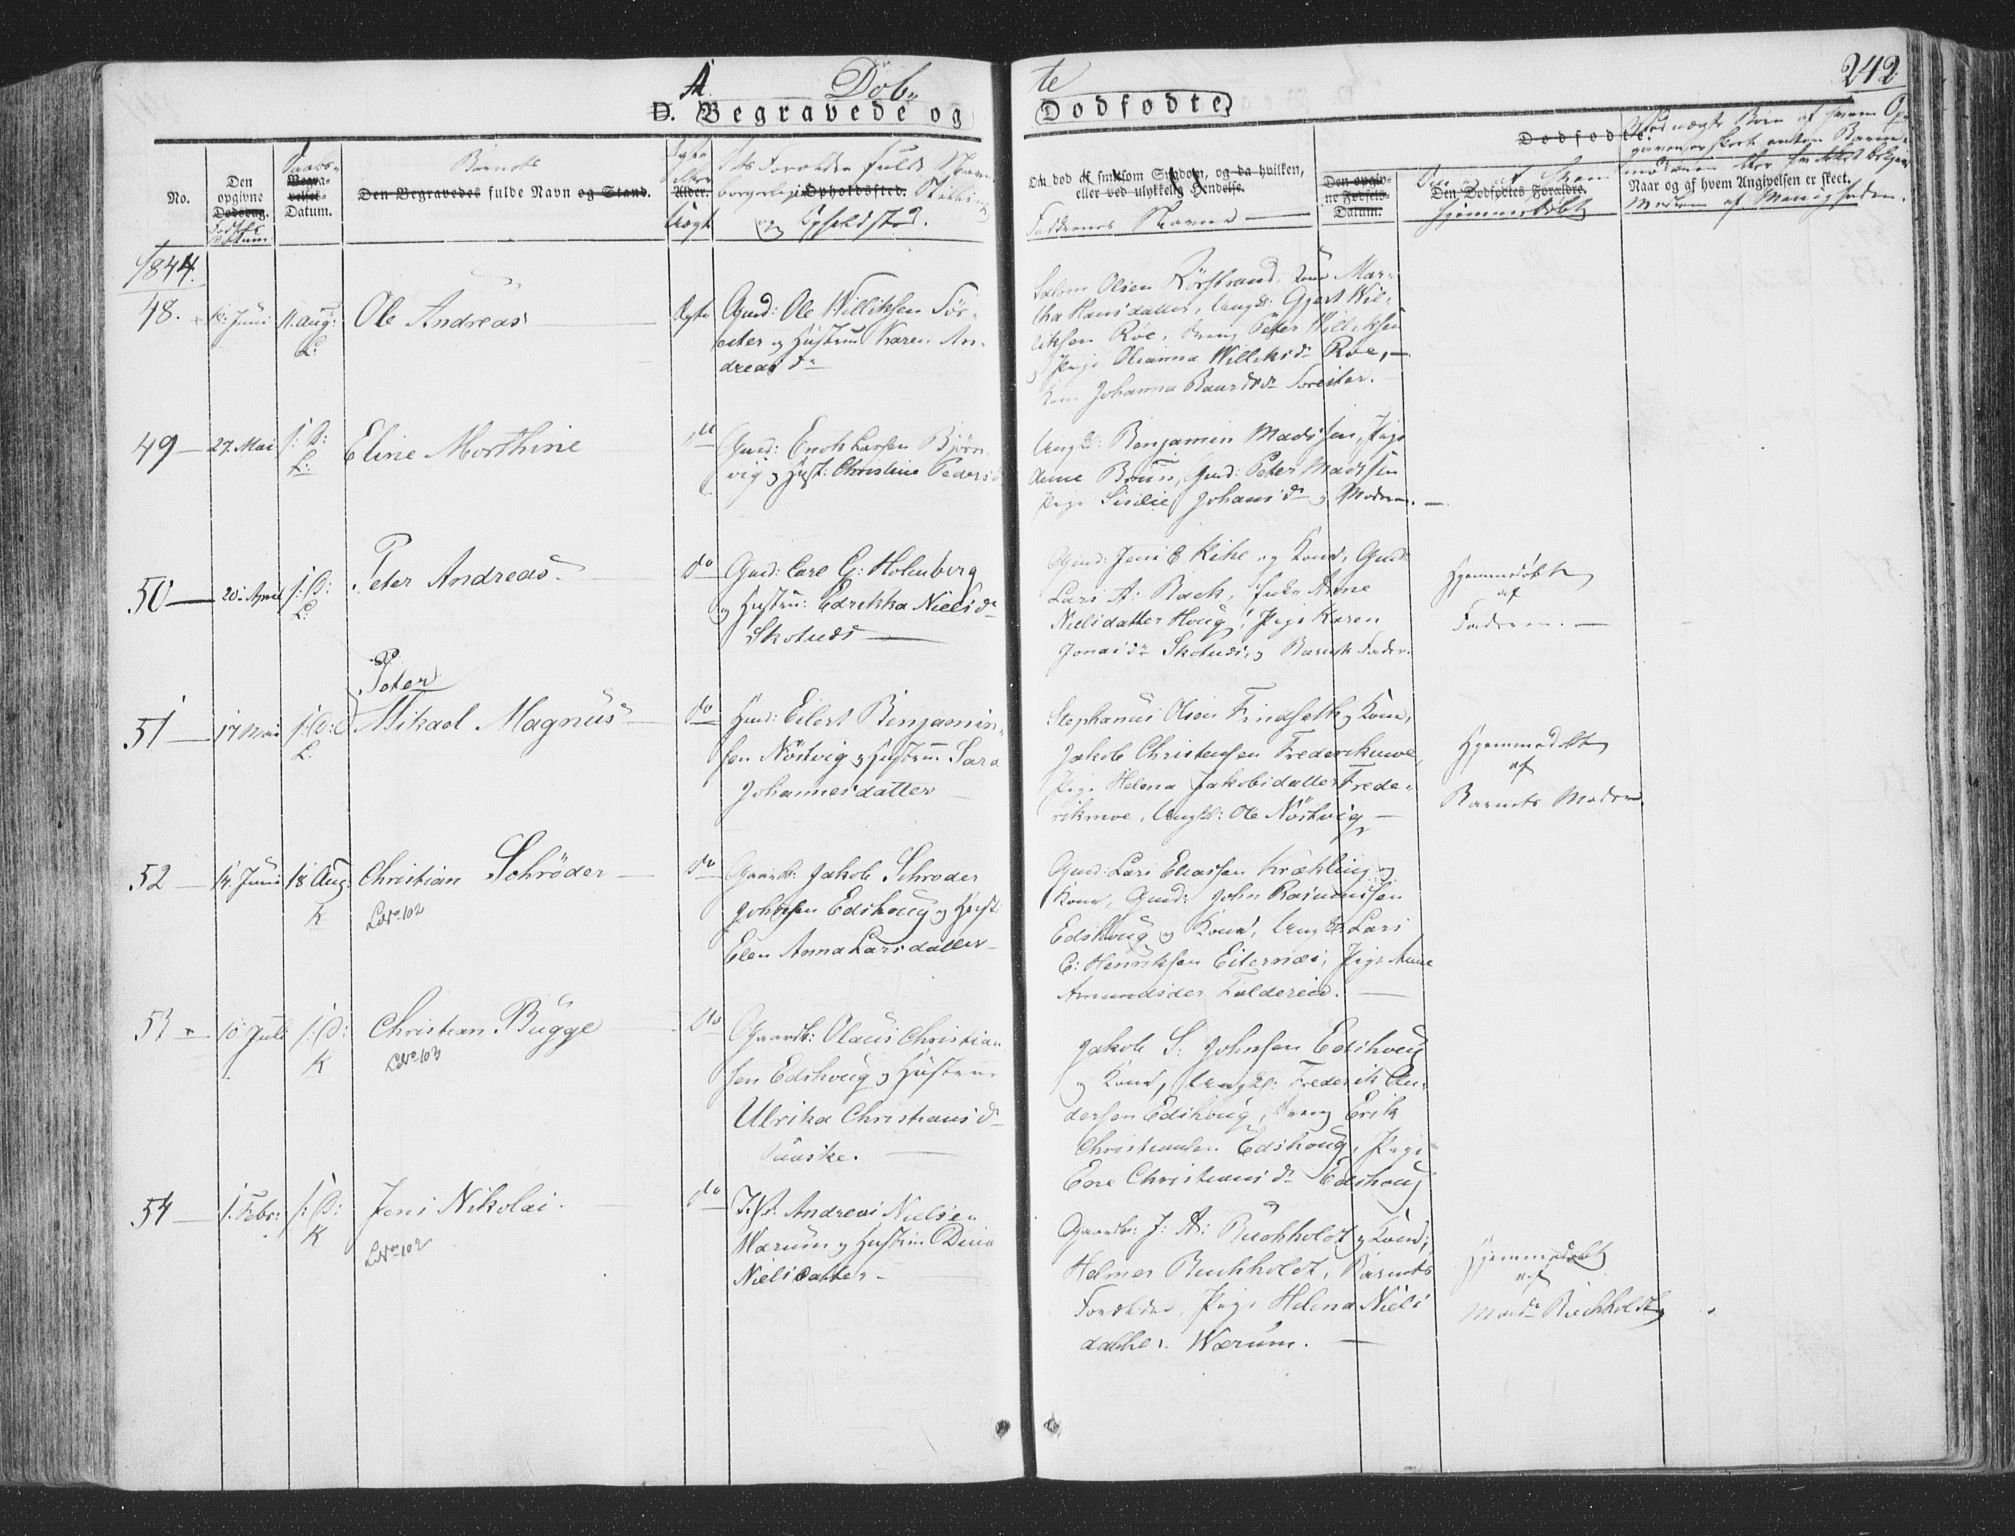 242
A. Döb„ te
D. Begravede og Dødfødte
No.
Den opgivne Dødsdag.
Fødsels Datum
Daabs-
Begra-
velses-
Datum.
Barnets
Den Begravedes fulde Navn og Stand.
Ægte
eller
Alder.
Uægt
Forældre fulde Navn
borgerlige Opholdssted. Stilling
og Opholdsted.
Om død af smitsom Sygdom, og da hvilken,
eller ved ulykkelig Hændelse.
Faddernes Navne
Den opgiv-
ne Fødsels-
Datum.
Dødfødte.
Den Dødfødtes Forældre.
hjemmedøbt
Naar og af hvem Angivelsen er skeet.
1844.
48. 10. Juni 11. Aug:
L:
Ole Andreas
Ægte
Gmd: Ole Williksen Før-
ester og Hustrue Karen An-
dreas dr
Salom Olsen Rörstrand, Kone Mar-
tha Hansdatter, Ungk: Gjert Wil-
liksen Røe, Dreng Peter Williksen
og Pige Olianna Williksdr Røe,
Kone Johanna Baardsdr Forester.
49 27. Mai s: D:
L:
Eline Morthine
do
Gmd: Enok Larsen Bjørn
vig og Hust: Christine Peders d
Ungk: Benjamin Madssen, Pige
Anne Brun, Gmd: Peter Madssen
Pige Sisilie Johansdr og Moderen.
50 20. April s: D:
L:
Peter Andreas
do
Gmd: Carl C: Holmberg
og Hustru: Edrikka Niels dr
Skotnes
Gmd: Jens C Kihl og Kone, Gmd:
Lars A: Bach, Enke Anne
Nielsdatter Houg, Pige Karen
Jonas dr Skotnes, og Barnets Fader.
Hjemmedøbt
af
Faderen.
51 17 Mai s: D:
L.
Peter
Mikael Magnus
do
Hmd: Eilert Benjamin-
sen Nöstvig og Hustrue Sara
Johannesdatter
Stephanus Olsen Findseth og Kone,
Jakob Christensen Frederikmoe,
Pige Helena Jakobsdatter Frede-
rikmoe, Ungk: Ole Nöstvig
Hjemmedøbt
af
Barnets Moder
52 14. Juni 18 Aug:
K
Christian Schrøder
LNo 102
do
Gaardb: Jakob Schrøder
Johnsen Edshoug og Hust:
Elen Anna Larsdatter
Gmd: Lars Eliassen Krækling og
Kone, Gmd: John Rasmussen
Edshoug og Kone, Ungk: Lars
C: Henriksen Eiternæs, Pige Anne
Amundsdr Foldereid.
53 10 Juli s: D:
K
Christian Bugge
LNo 103
do
Gaardb: Olaus Christian
sen Edshoug og Hustrue
Ulrika Christians dr
Jakob S: Johnsen Edshoug
og Kone, Ungk: Frederik An-
dersen Edshoug, Dreng Erik
Christiansen Edshoug, Pige
Ene Christians dr Edshoug
54 1. Febr: s: D:
K
Jens Nikolai.
LNo 102
do
Andreas Nielsen
Wærum og Hustrue
Nielsdatter
Gaardb: J: A: Buchholdt og Kone,
Helmer Buchholdt, Barnets
Forældre, Pige Helena Niels
datter Wærum.
Hjemmedøbt
af
Mad: Buchholdt